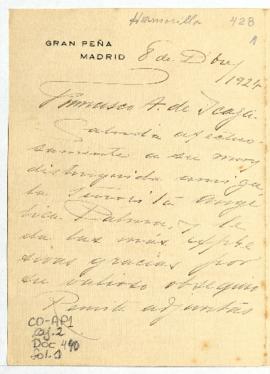 Hermosilla 428
A
GRAN PEÑA
MADRID
8 de Dbre/
1924
Francisco A. de Icaza
Saluda afectuo-
samente a su muy
distinguida amiga
la Señorita Angé-
lica Palma, y le
da las más expre-
sivas gracias por
su valioso obsequio
Remite adjuntas
CO-AP1
Caj. 2
Doc 440
Fol. 1